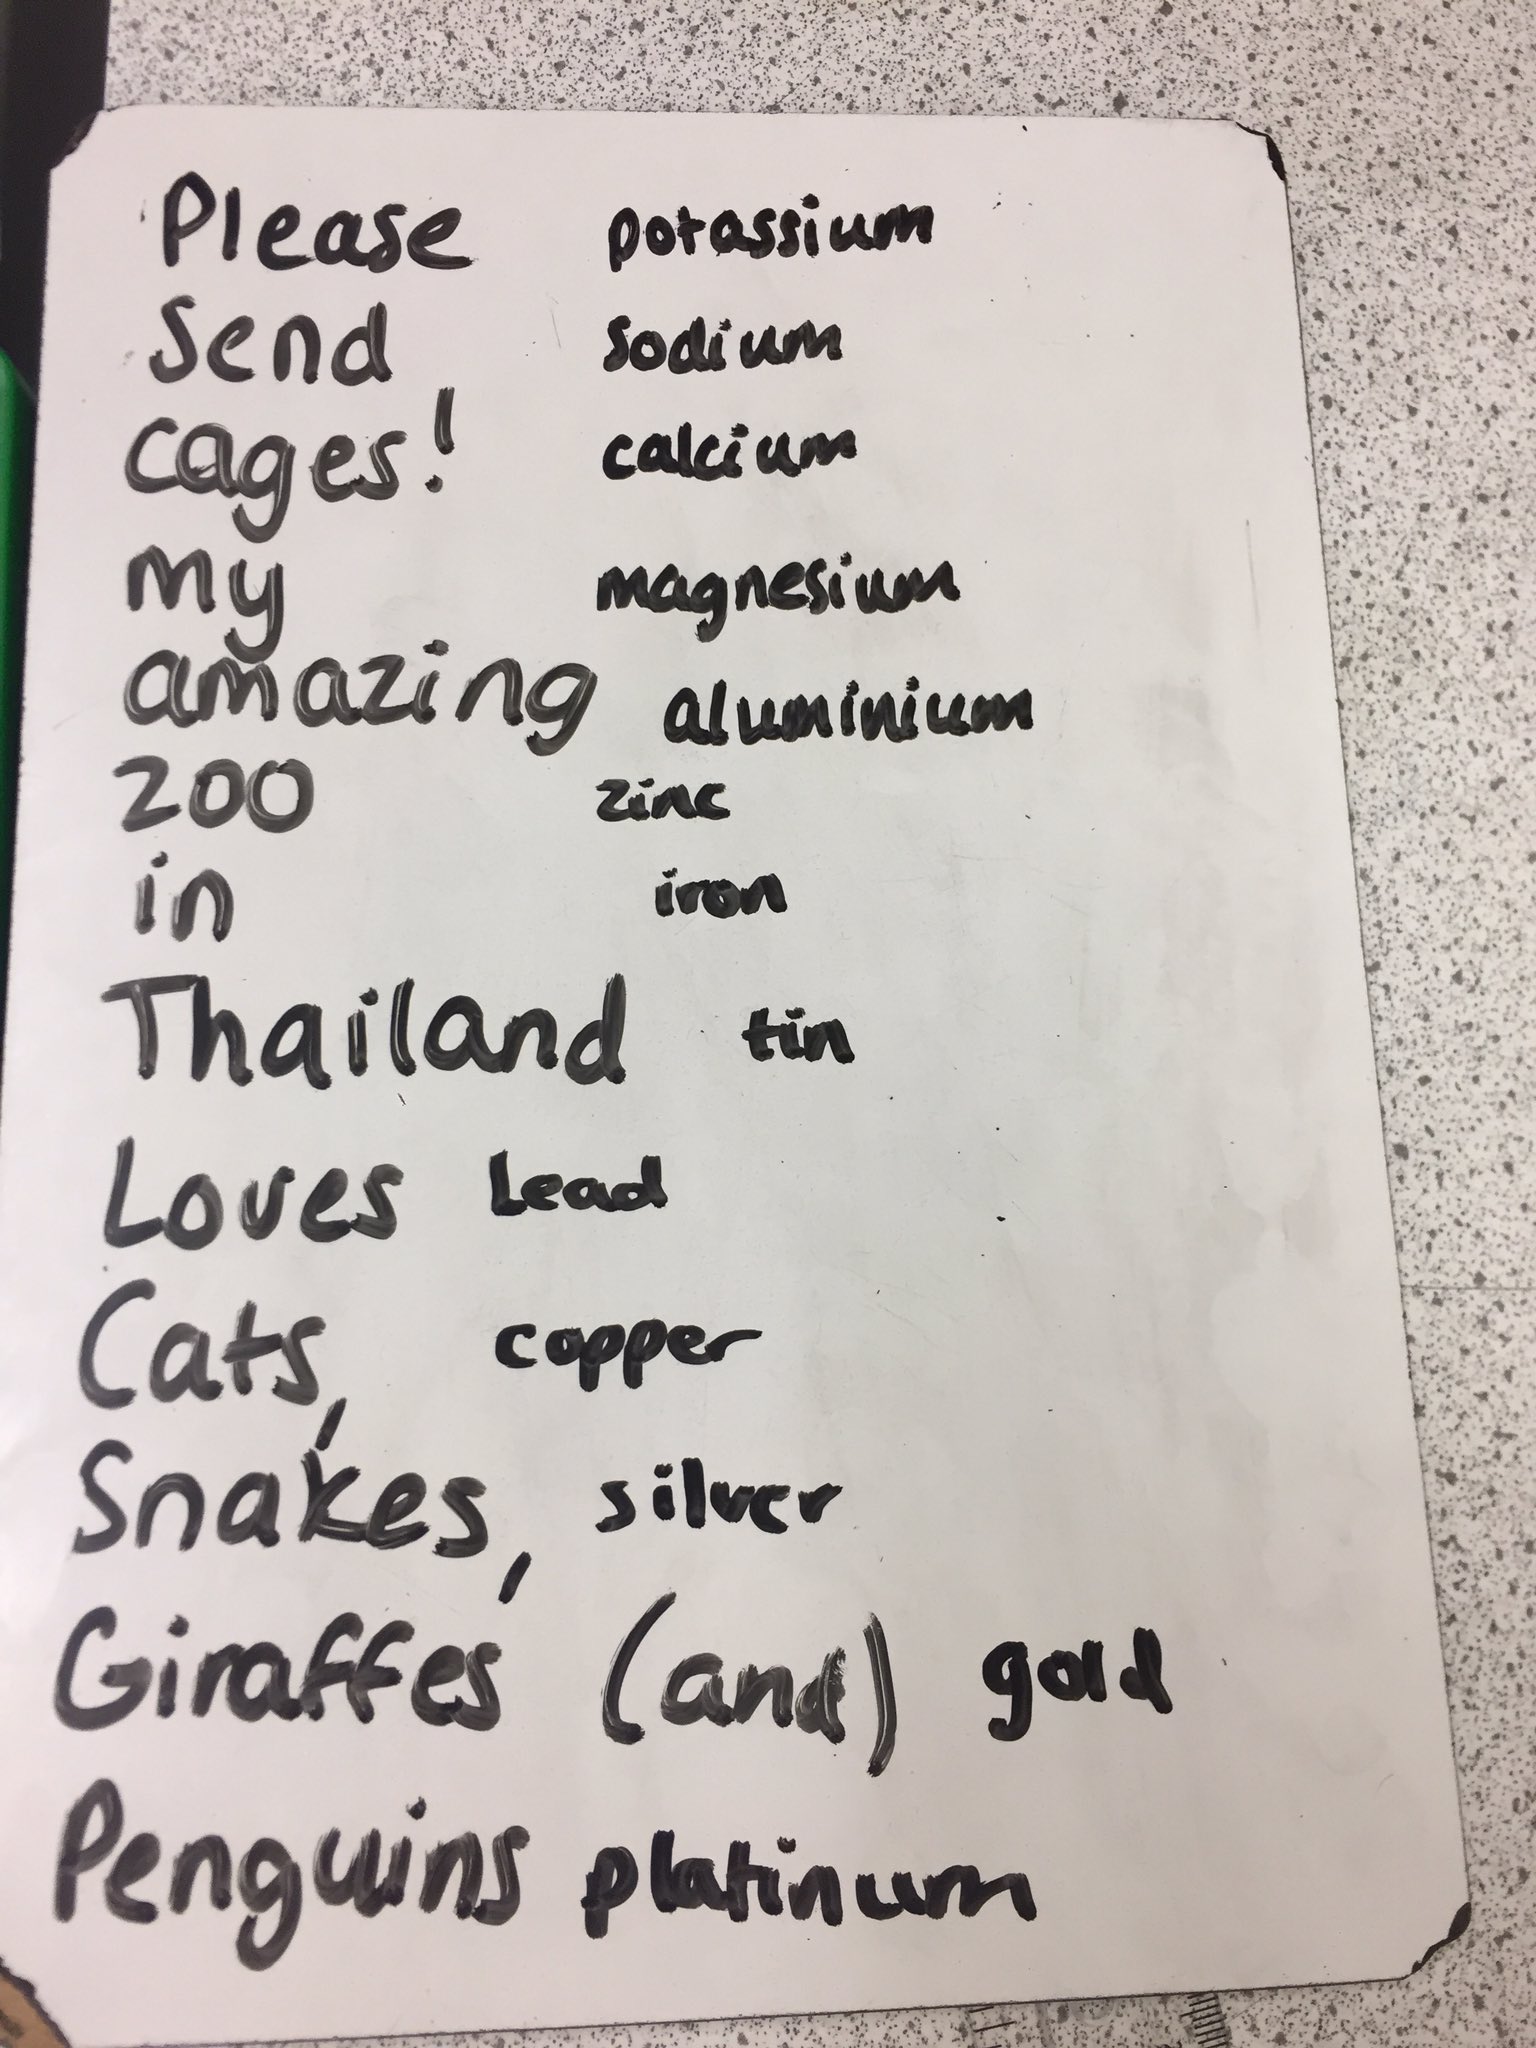 Please potassium
Send sodium
cages! calcium
my magnesium
amazing aluminium
zoo zinc
in iron
Thailand tin
Loves Lead
Cats, copper
Snakes, silver
Giraffes (and) gold
Penguins platinum